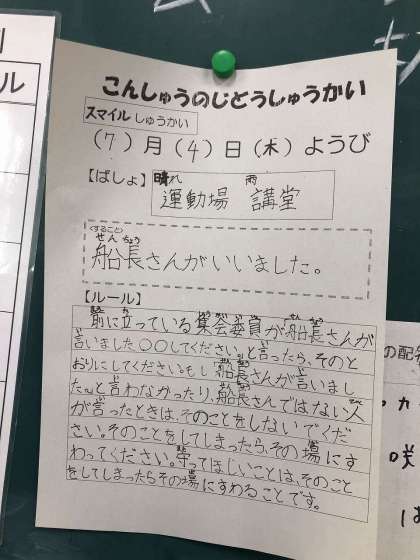 こんしゅうのじどうしゅうかい
スマイルしゅうかい
(7)月(4)日(木)ようび
【ばしょ】晴れ 雨
運動場 講堂
<すること>
せんちょう
船長さんがいいました。
【ルール】
前に立っている集会委員が船長さんが
言いました○○してください。と言ったら、そのと
おりにしてください。もし船長さんが言いまし
たと言わなかったり、船長さんではない人
が言ったときは、そのことをしないでくだ
さい。そのことをしてしまったら、その場にす
わってください。守ってほしいことは、そのこと
をしてしまったらその場にすわることです。
ル
の配
咲
は